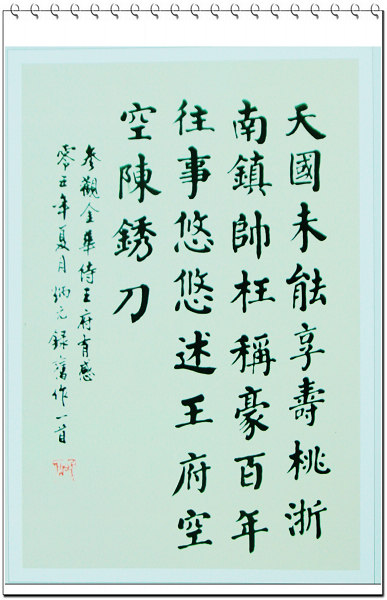 天國未能享壽桃浙
南鎮帥枉稱豪百年
往事悠悠述王府空
空陳銹刀
參觀金華侍王府有感
零五年夏月炳元錄舊作一首